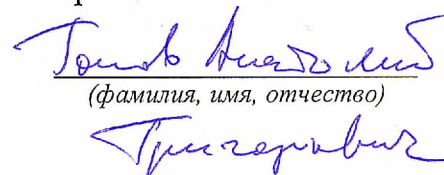 Анатолий
(фамилия, имя, отчество)
Григорьевич